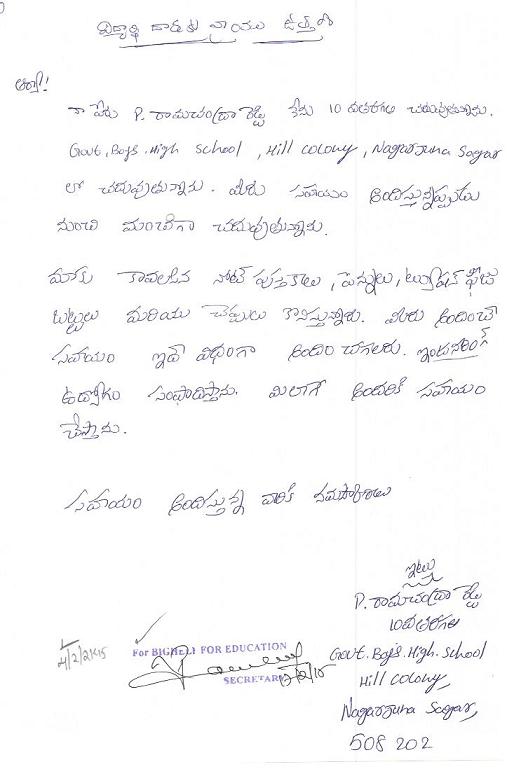 విద్యార్థి దాతకు వ్రాయు ఉత్తరం
ఆర్యా!
నా పేరు P. రామచంద్రా రెడ్డి నేను 10 వతరగతి చదువుతున్నాను.
Govt, Boys. High school, Hill colony, Nagarjuna Sagar
లో చదువుతున్నాను. మీరు సహాయం అందిస్తున్నప్పుడు
నుంచి మంచిగా చదువుతున్నాను.
మాకు కావలసిన నోట్ పుస్తకాలు, పెన్నులు, ట్యూషన్ ఫీజు
బట్టలు మరియు చెప్పులు కొనిస్తున్నారు. మీరు అందించే
సహాయం ఇదే విధంగా అందించగలరు.
ఉద్యోగం సంపాదిస్తాను. మిలాగే అందరికి సహాయం
చేస్తాను.
సహాయం అందిస్తున్న వారికి నమస్కారాలు
ఇట్లు
P. రామచంద్రా రెడ్డి
10వతరగతి
Govt. Boys. High. school
Hill colony,
Nagarjuna Sagar,
508 202
For BIGHELP FOR EDUCATION
SECRETARY